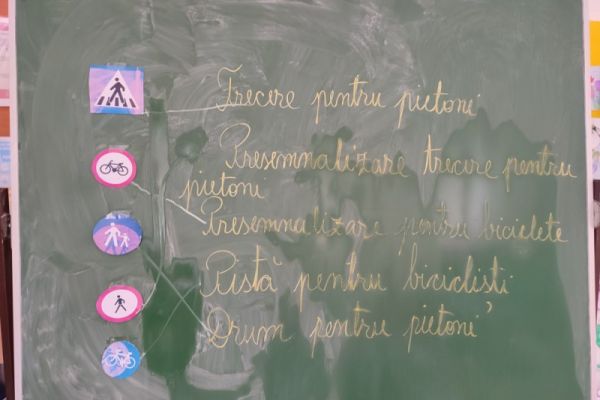 Trecere pentru pietoni
Presemnalizare trecere pentru
pietoni
Presemnalizare pentru biciclete
Pistă pentru bicicliști
Drum pentru pietoni